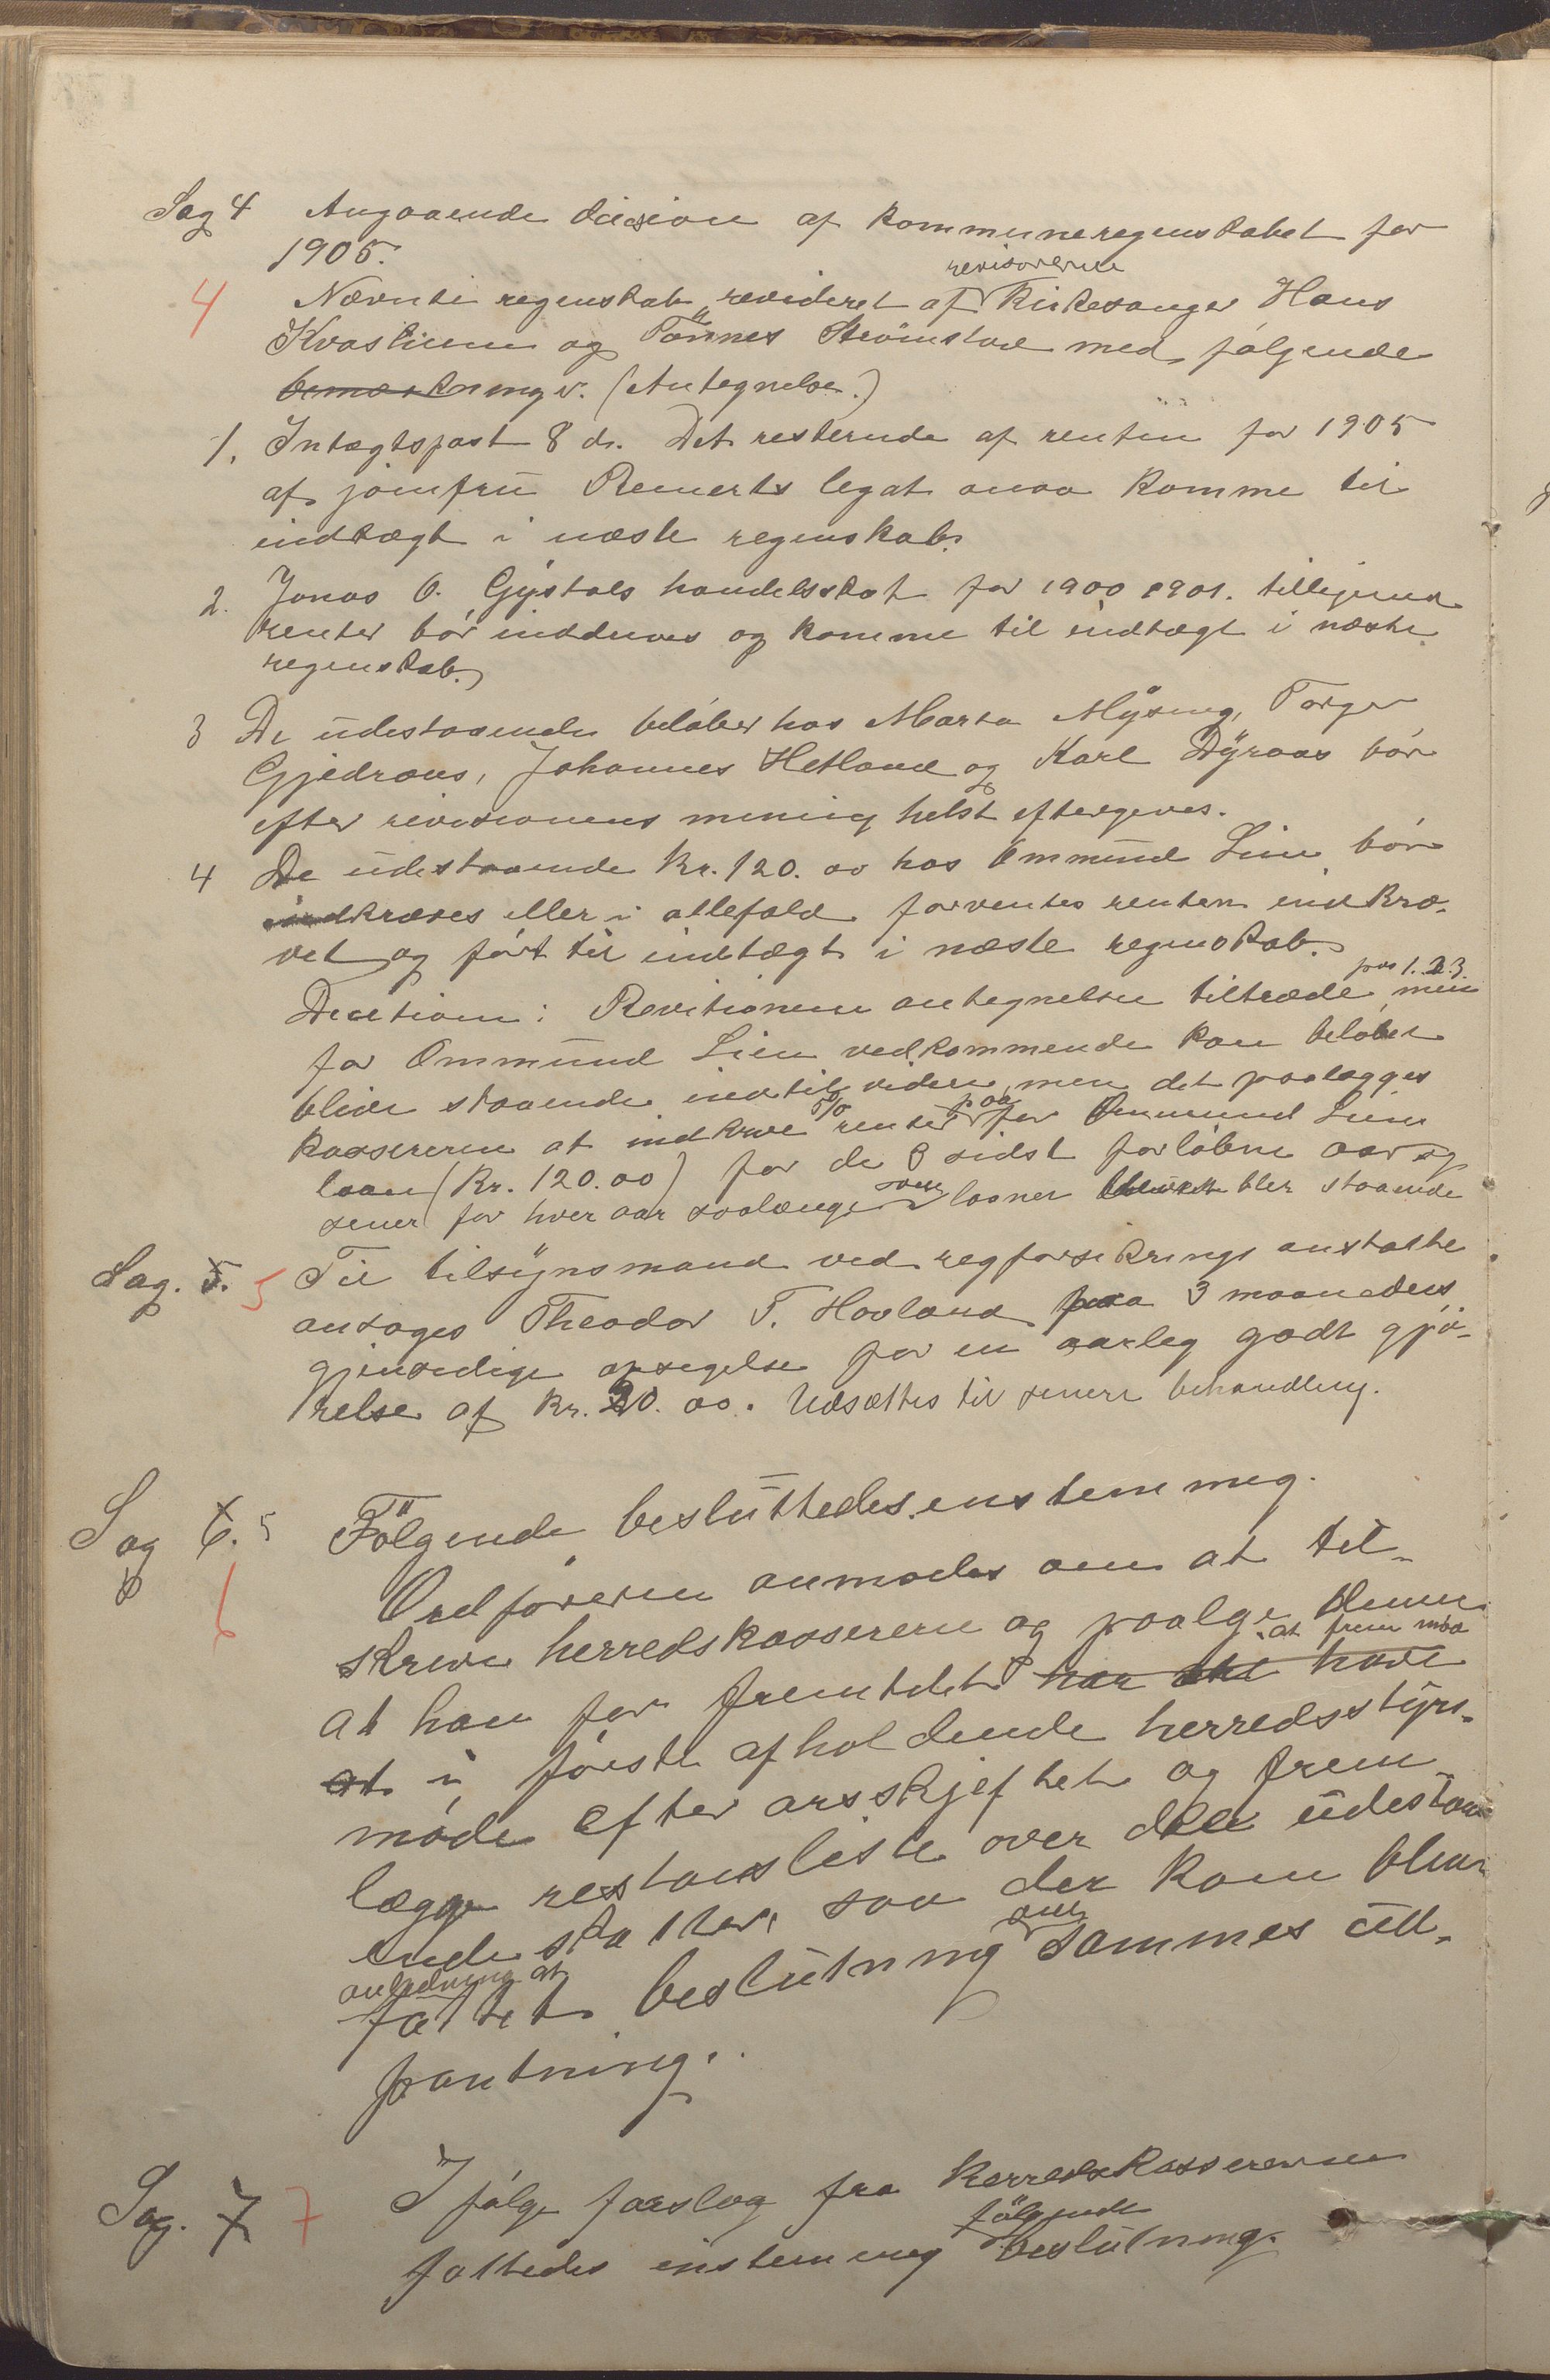 Sag 4 Angaaende decision af kommuneregnskabet for
1905.
revisorerne
4 Nævnte regnskab revideret af Kirkesanger Hans
Kvastunn og Tönnes Strömstad med følgende
bemærkninger. (Antegnelse.)
1. Intægtspost 8 d. Det resterende af renten for 1905
af jomfru Reinerts legat maa komme til
indtægt i næste regnskab.
2. Jonas O. Gystøls handelsskat for 1900 1901. tilligemed
renter bör inddrives og komme til indtægt i næste
regnskab.
3 De udestaaende beløber hos Marta Mysing, Torger
Gjedraas, Johannes Hetland og Karl Dyraas bör
efter revisionens mening helst eftergives.
4 De udestaaende kr. 120.00 hos Ommund Lien bör
indkræves eller i allefald forventes renten indkræ-
vet og ført til indtægt i næste regnskab.
pos 1. 2.3.
Decition: Revitionens antegnelser tiltrædes men
for Ommund Lien vedkommende kan beløbet
blive staaende indtil videre, men det paalægges
5% paa
kassereren at indkræve renter for Ommund Liens
laan (Kr. 120.00) for de 3 sidst forløbne aar og
som
senere for hver aar saalænge laanet bliver staaende
Sag. 5. 5 Til tilsynsmand ved regforsikrings anstalte
antages Theodor T. Hovland paa 3 maaneders
gjensidige opsigelse for en aarleg godt gjö-
relse af kr. 20.00. Udsættes til senere behandling.
Sag 6. 5 Fölgende besluttedes enstemmeg.
6 Ordföreren anmodes om at til-
skrive herredskassereren og paalæge denne
at frem møa
at han for fremtidet har at have
at i förste afholdende herredsstyre-
møde efter arsskjeftet og frem-
lægge restansliste over dee udestaa
ende skatter, saa der kan bliver
anledning at om
fattet beslutning sammes ud-
pantning.
Sag. 7 7 I følge forslag fra Herredskassereren
fölgende
fattedes enstemmeg beslutning.